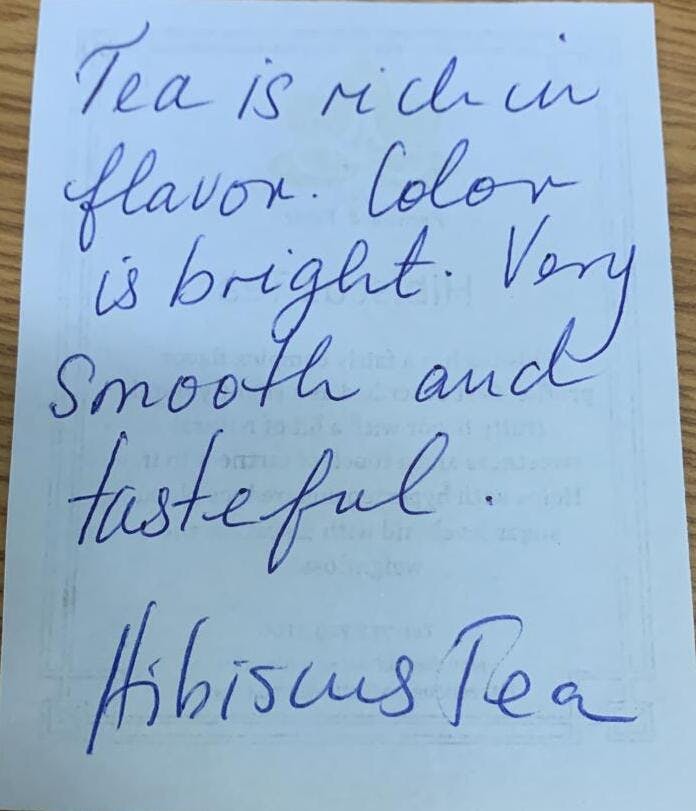 Tea is rich in
flavor. Color
is bright. Very
smooth and
tasteful.
Hibiscus Tea